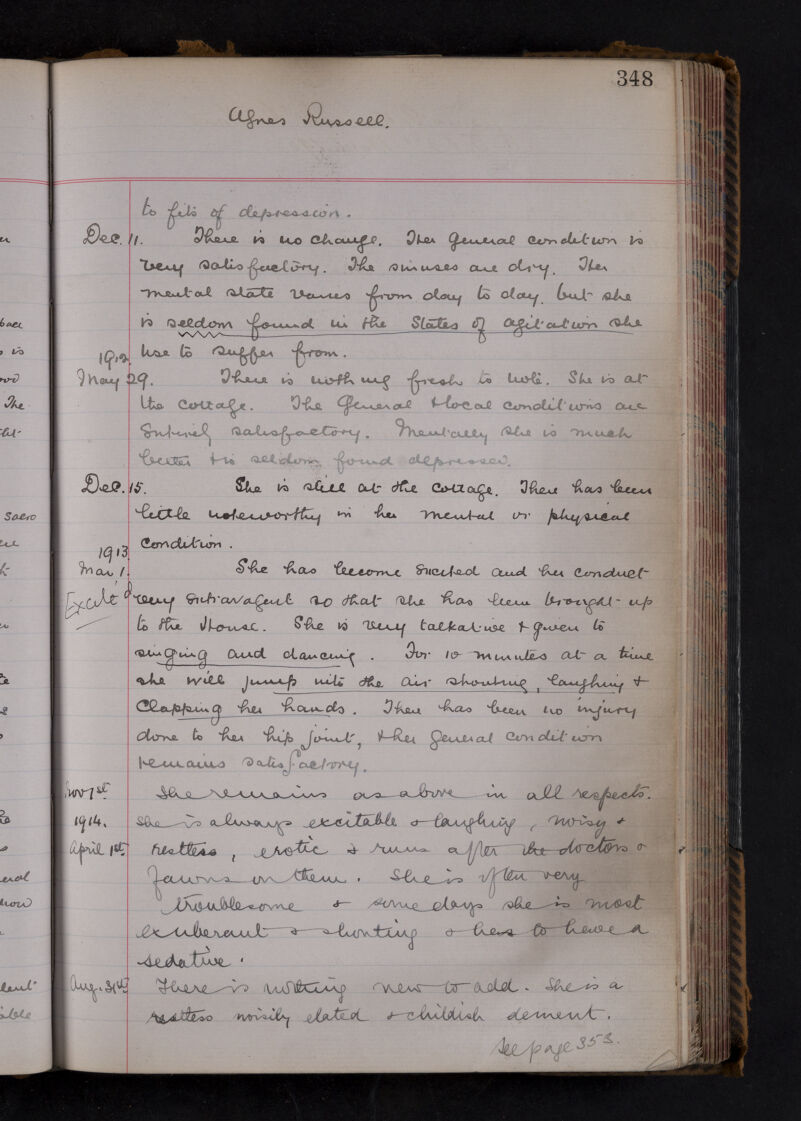 348
Agnes Russell.
to fits of depression.
Dec. 11. There is no change. Her general condition is
very satisfactory. The sinuses are dry. Her
mental state varies from day to day, but she
is seldom found in the States of agitation she
1912. use to suffer from.
May 29. There is nothing fresh to note. She is at
the cottage. The General & local conditions are
Entirely satisfactory. Mentally she is much
better & is seldom found depressed.
Dec. 15. She is still at the cottage. There has been
little noteworthy in her mental or physical
1913 condition.
Mar. 1. She has become Excited and her conduct
Excitd very Extravagent so that she has been brought up
to the House. She is very talkative & given to
singing and dancing. For 10 minutes at a time
she will jump into the air shouting, laughing &
Clapping her hands. There has been no injury
done to her hip joint, & her general condition
remains satisfactory.
Nov 1st She remains as above in all respects.
1914. She is always excitable & laughing, noisy &
April 1st restless, erotic & runs after the doctors &
fawns on them. She is often very
troublesome & some days she is most
exuberant & shouting & has to have a
sedative.
Aug. 31st There is nothing new to add. She is a
restless noisily elated & childish dement.
See page 353.